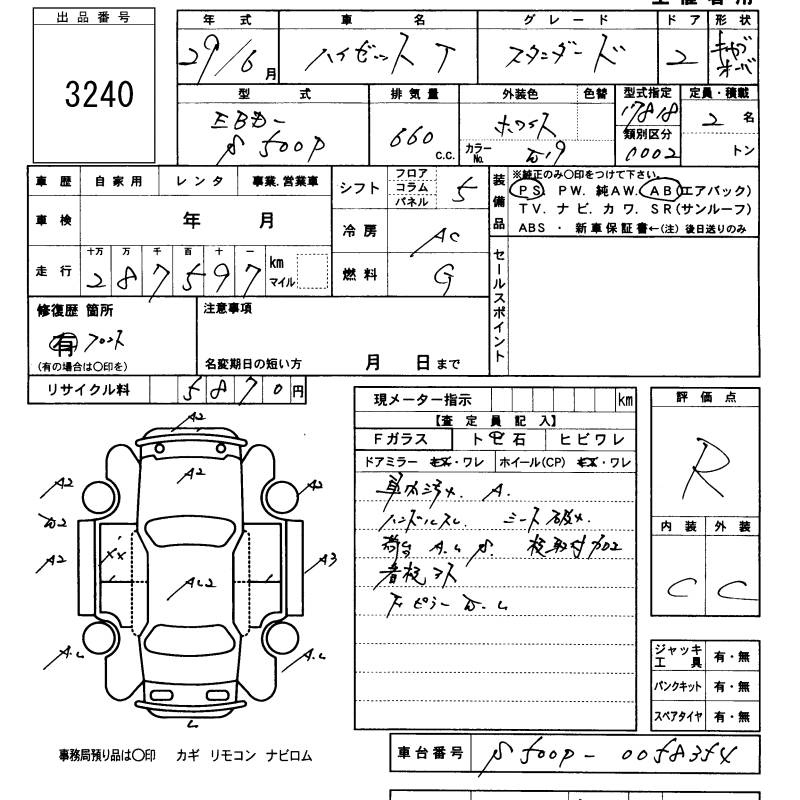 出品番号
3240
年式 車名 グレード ドア 形状
29/6月 ハイゼットT スタンダード 2 キャブオーバ
型式 排気量 外装色 色替 型式指定 定員・積載
EBD- 660 c.c. ホワイト 17818 2名
S500P カラーNo. W19 類別区分 0002 トン
車歴 自家用 レンタ 事業.営業車
シフト フロア コラム パネル 5
装備品 ※純正のみ〇印をつけて下さい。
PS. PW. 純AW. AB(エアバック)
TV. ナビ. カワ. SR(サンルーフ)
ABS ・ 新車保証書←(注) 後日送りのみ
車検 年 月
冷房 AC
走行 十万 万 千 百 十 一
287597 km マイル
燃料 G
セールスポイント
修復歴 箇所
有 フロント
(有の場合は〇印を)
注意事項
名変期日の短い方 月 日まで
リサイクル料 5870円
現メーター指示 km
【査定員記入】
Fガラス ト 石 ヒビワレ
ドアミラー ・ワレ ホイール(CP) ・ワレ
車内汚れ. A.
ハンドルスレ シート破れ.
荷台 A.
看板
ピラー
評価点
R
内装 外装
C C
A2
A2
A2
A2
W2
A2
XX
AL2
A3
A.L
A.L
L
ジャッキ工具 有・無
パンクキット 有・無
スペアタイヤ 有・無
事務局預り品は〇印 カギ リモコン ナビロム
車台番号 S500P-0058354